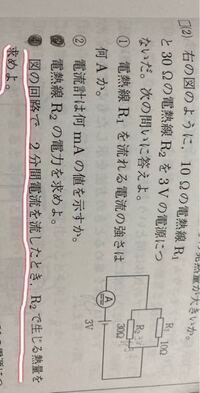 発熱量が大きいか。
(2) 右の図のように，10Ωの電熱線R₁
と30Ωの電熱線R₂を3Vの電源につ
ないだ。次の問いに答えよ。
① 電熱線R₁を流れる電流の強さは
何Aか。
② 電流計は何mAの値を示すか。
電熱線R₂の電力を求めよ。
図の回路で，2分間電流を流したとき，R₂で生じる熱量を
求めよ。
R₁ 10Ω
R₂
30Ω
A
3V